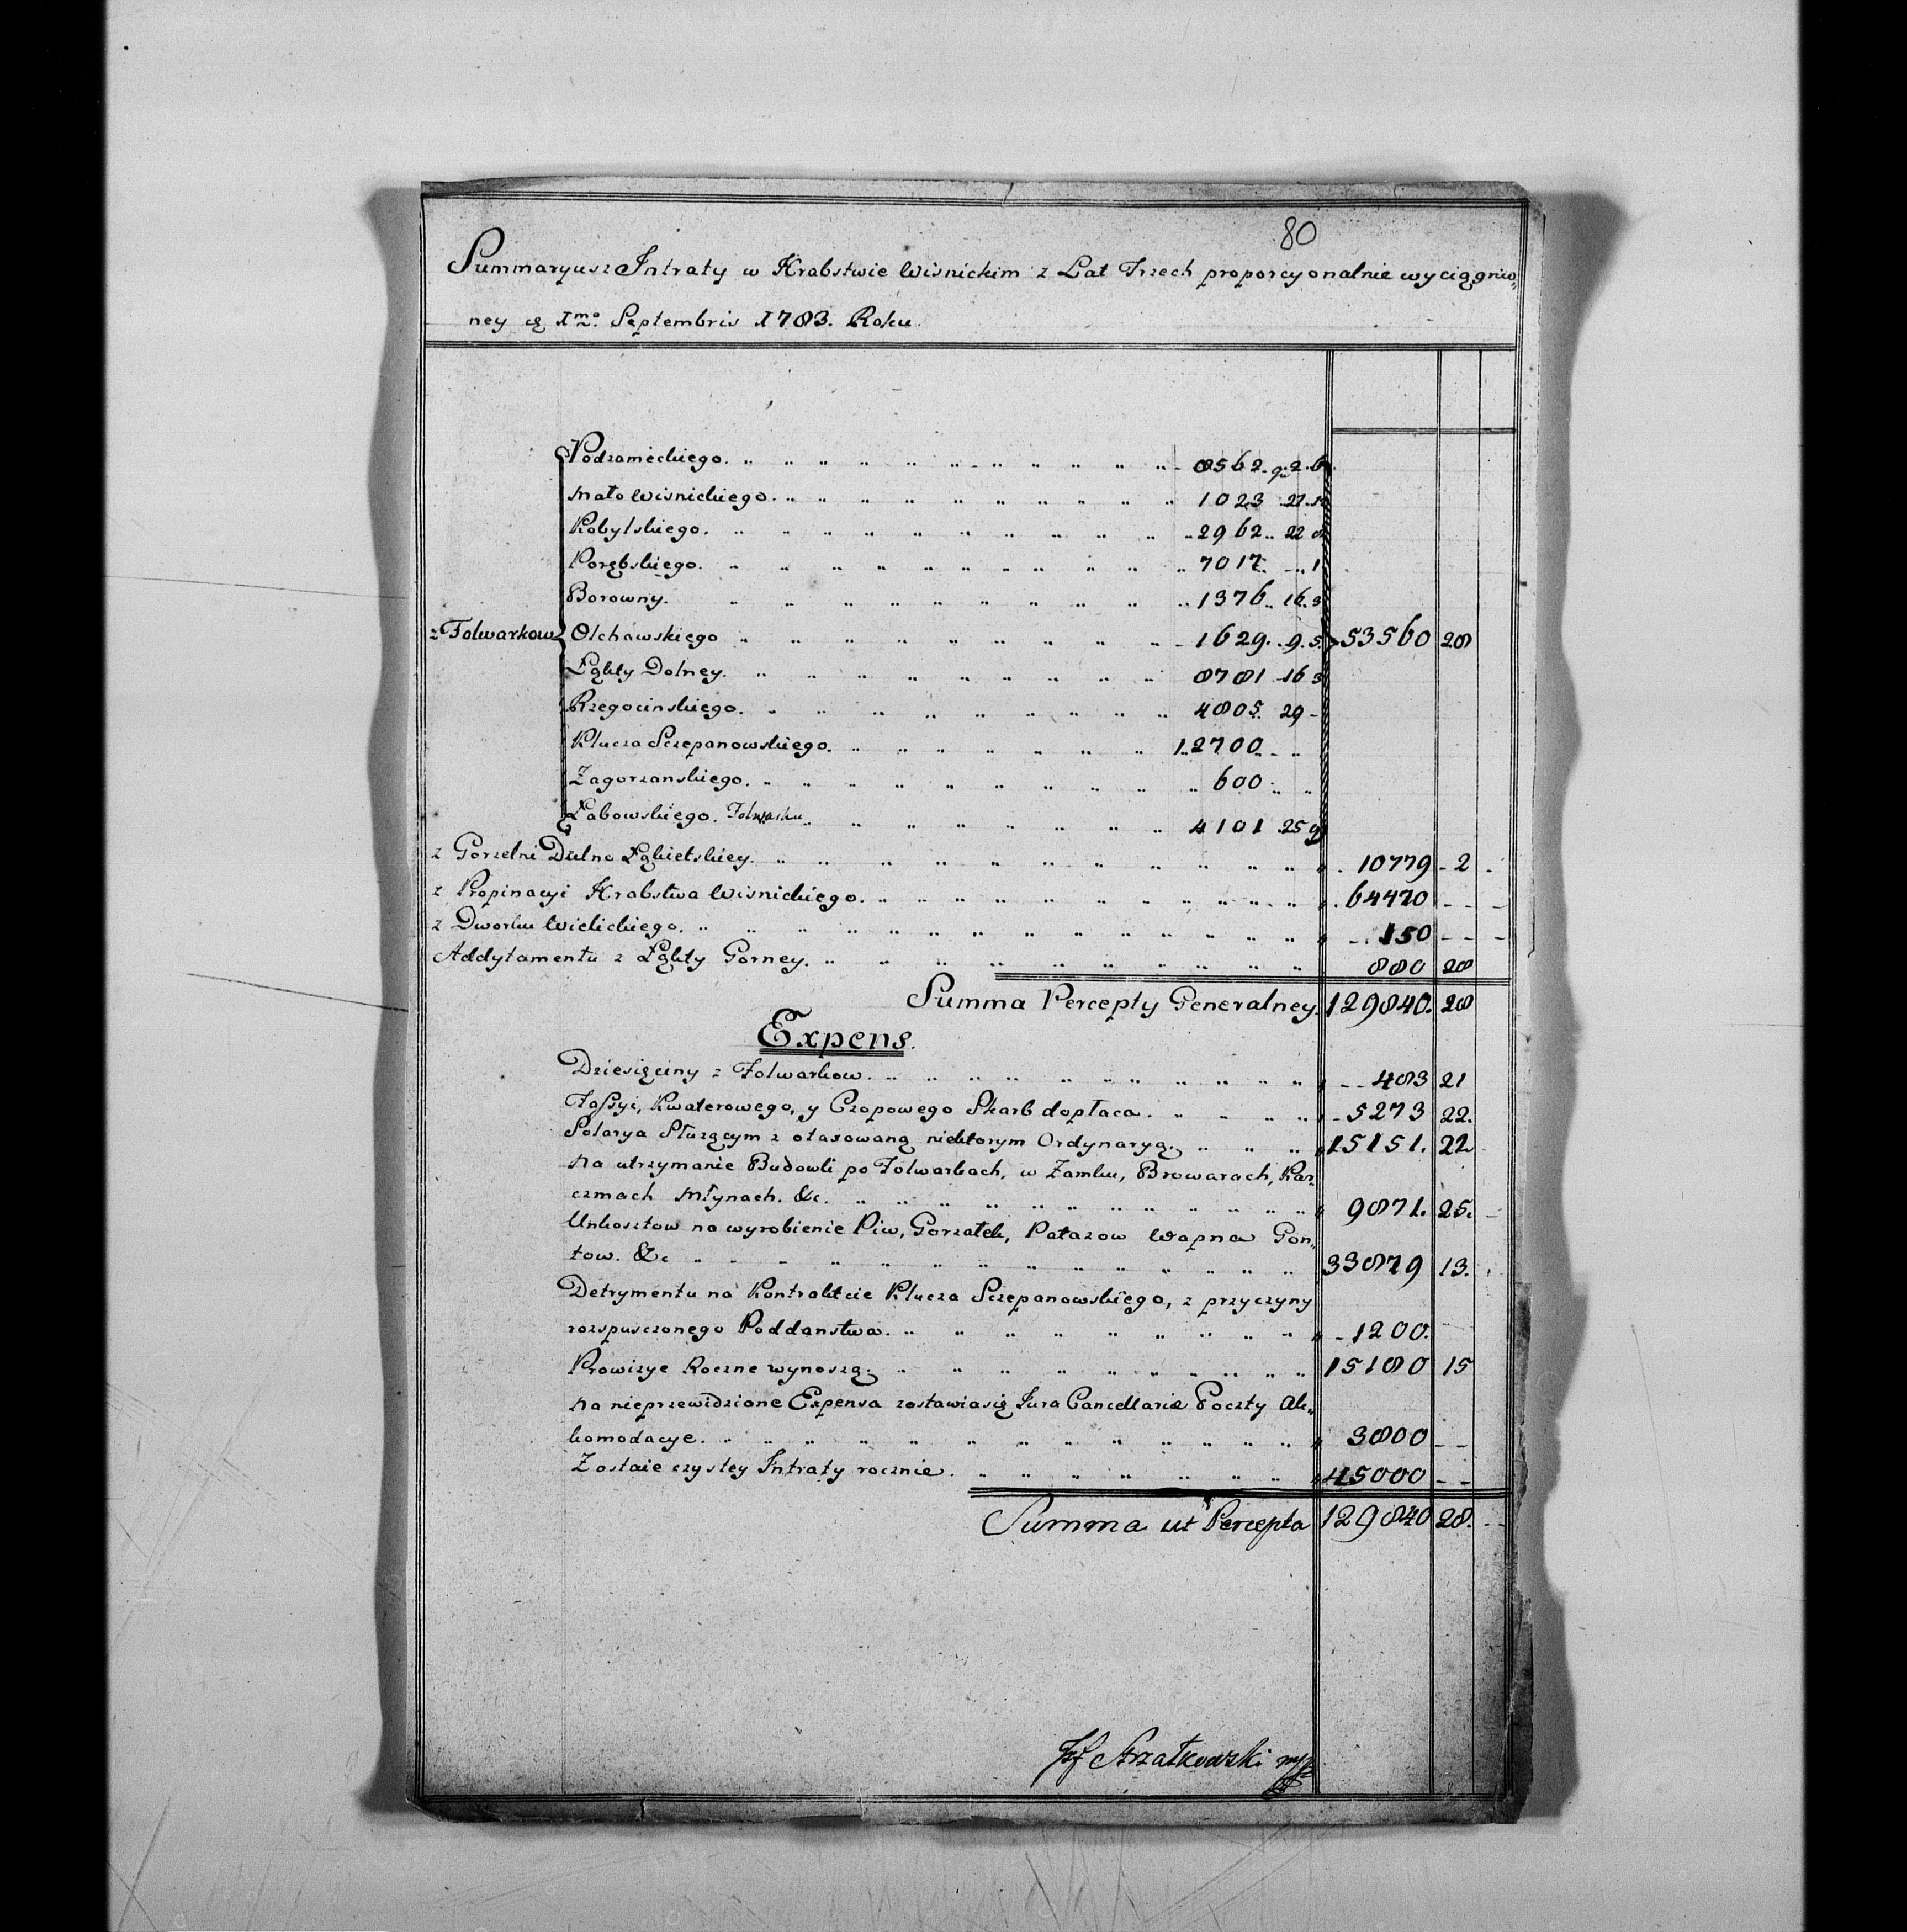 80
Summaryusz Intraty w Hrabstwie Wisnickim z Lat Trzech proporcyonalnie wyciągnio„
ney a Imo Septembris 1783. Roku.
Podzameckiego. 8562. g. 2. 6
Mało Wisnickiego. 1023 21. 10
Kobylskiego. 2962 22 8
Porębskiego. 7017 - 1
Borowny. 1376 16. 3
z Folwarkow Olchawskiego 1629. 9. 5. 53560 28
Łąkty Dolney. 8781 16 3
Rzegocinskiego. 4805. 29 -
Klucza Sczepanowskiego. 12700
Zagorzanskiego. 600
Łabowskiego. Folwarku 4101 25 9
z Gorzelni Dolno Łąkietskiey. 10779 - 2
z Propinacyi Hrabstwa Wisnickiego. 64470 - -
z Dworku Wielickiego. 150 - - -
Addytamentu z Łąkty Gorney. 880 28
Summa Percepty Generalney. 129840. 28
Expens.
Dziesięciny z Folwarkow. 483 21
Fassyi, Kwaterowego, y Czopowego Skarb dopłaca. 5273 22.
Solarya Służącym z otaxowaną niektorym Ordynaryą. 15151. 22
Na utrzymanie Budowli po Folwarkach, w Zamku, Browarach, Kar„
czmach Młynach. &c. 9871. 25.
Unkosztow na wyrobienie Piw, Gorzałek, Potazow Wapna Gon„
tow. &c 33879 13.
Detrymentu na Kontrakcie Klucza Sczepanowskiego, z przyczyny
rozpusczonego Poddanstwa. 1200.
Prowizye Roczne wynoszą. 15180 15
Na nieprzewidziane Expensa zostawia się Jura Cancellariæ Poczty Ak„
komodacye. 3800 - -
Zostaie czystey Intraty rocznie. 45000 - -
Summa ut Percepta 129840 28.
Strzałkowski mp